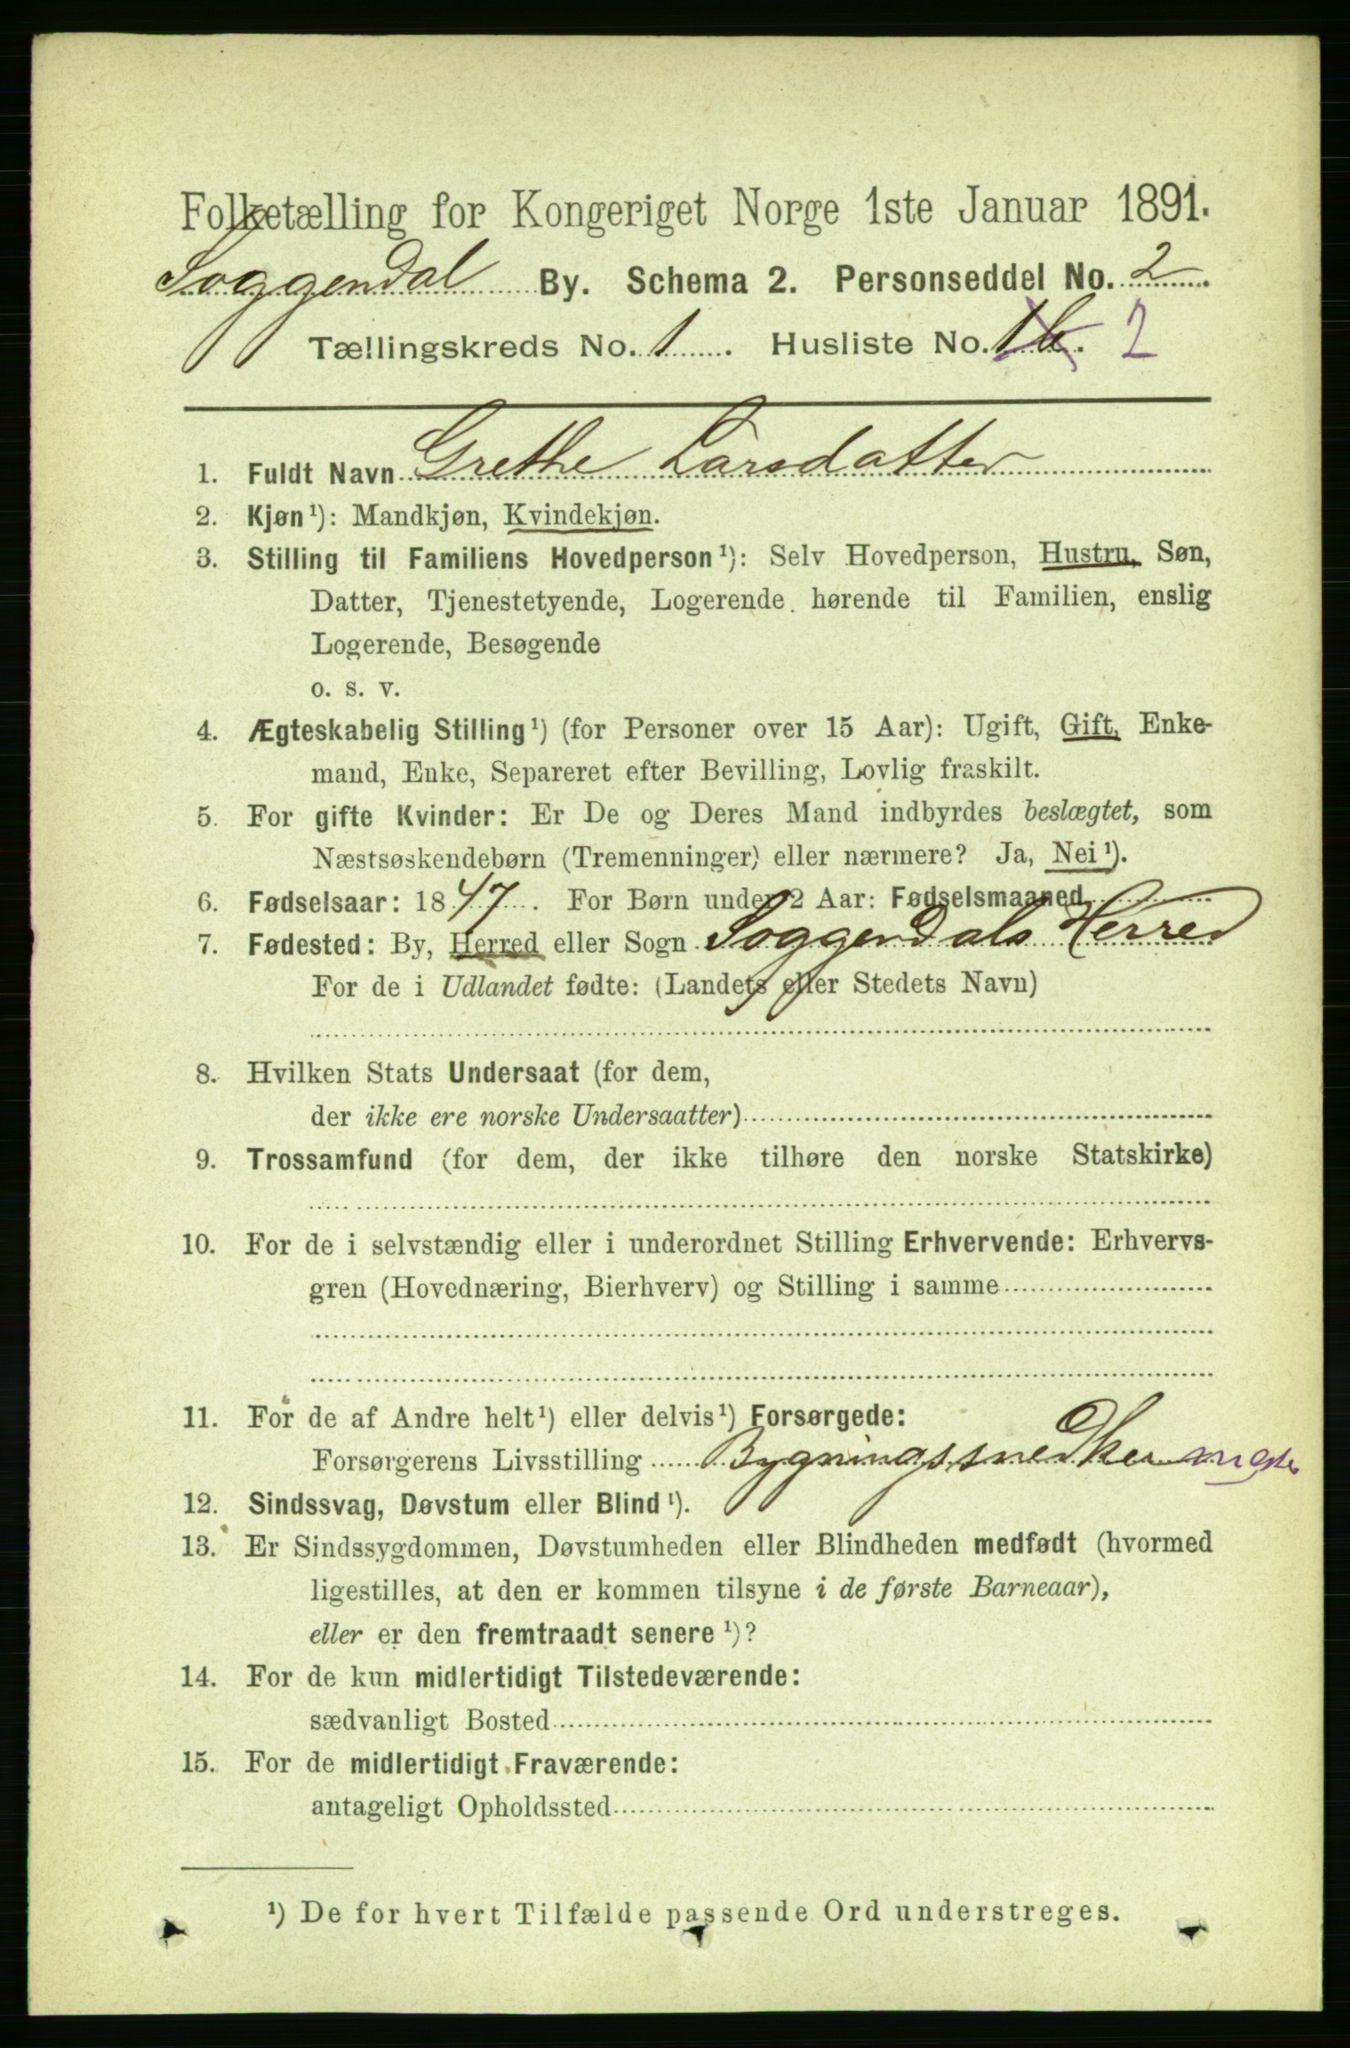 Folketælling for Kongeriget Norge 1ste Januar 1891.
Soggendal By. Schema 2. Personseddel No. 2
Tællingskreds No. 1. Husliste No. 1b. 2
1. Fuldt Navn Grethe Larsdatter
2. Kjøn¹): Mandkjøn, Kvindekjøn.
3. Stilling til Familiens Hovedperson¹): Selv Hovedperson, Hustru, Søn,
Datter, Tjenestetyende, Logerende hørende til Familien, enslig
Logerende, Besøgende
o. s. v.
4. Ægteskabelig Stilling¹) (for Personer over 15 Aar): Ugift, Gift, Enke-
mand, Enke, Separeret efter Bevilling, Lovlig fraskilt.
5. For gifte Kvinder: Er De og Deres Mand indbyrdes beslægtet, som
Næstsøskendebørn (Tremenninger) eller nærmere? Ja, Nei¹).
6. Fødselsaar: 1847. For Børn under 2 Aar: Fødselsmaaned
7. Fødested: By, Herred eller Sogn Soggendals Herred
For de i Udlandet fødte: (Landets eller Stedets Navn)
8. Hvilken Stats Undersaat (for dem,
der ikke ere norske Undersaatter)
9. Trossamfund (for dem, der ikke tilhøre den norske Statskirke)
10. For de i selvstændig eller i underordnet Stilling Erhvervende: Erhvervs-
gren (Hovednæring, Bierhverv) og Stilling i samme
11. For de af Andre helt¹) eller delvis¹) Forsørgede:
Forsørgerens Livsstilling Bygningssnedker
12. Sindssvag, Døvstum eller Blind¹).
13. Er Sindssygdommen, Døvstumheden eller Blindheden medfødt (hvormed
ligestilles, at den er kommen tilsyne i de første Barneaar),
eller er den fremtraadt senere¹)?
14. For de kun midlertidigt Tilstedeværende:
sædvanligt Bosted
15. For de midlertidigt Fraværende:
antageligt Opholdssted
¹) De for hvert Tilfælde passende Ord understreges.